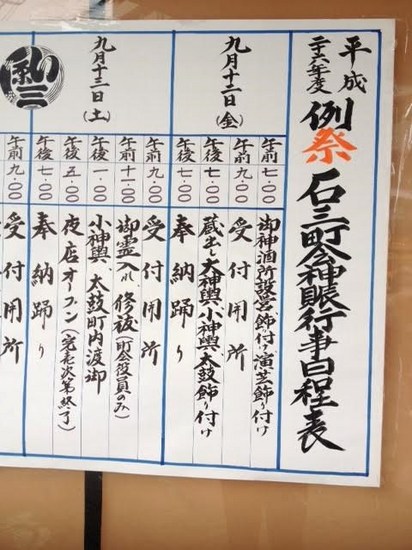 平成
二十六年度
例祭
石三町会神賑行事日程表
九月十二日(金)
午前七・〇〇 御神酒所設営、飾付け、演芝飾り付け
午前九・〇〇 受付開所
午後七・〇〇 蔵出し大神輿、小神輿、太鼓飾り付け
午後七・〇〇 奉納踊り
九月十三日(土)
午前九・〇〇 受付開所
午前十一・〇〇 御霊入れ、修祓(町会役員のみ)
午後一・〇〇 小神輿、太鼓町内渡御
午後五・〇〇 夜店オープン(完売次第終了)
午後七・〇〇 奉納踊り
午前九・〇〇 受付開所